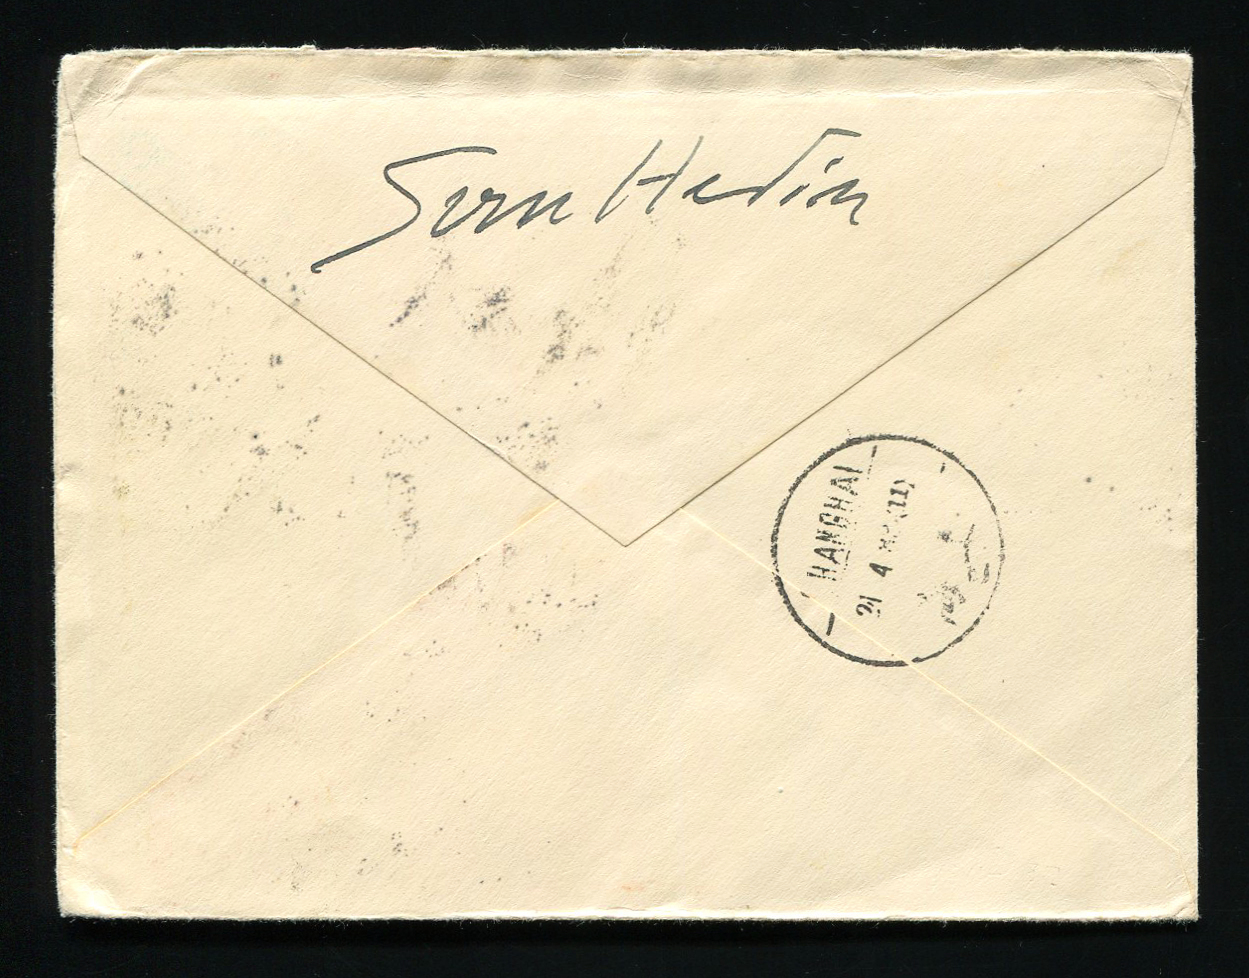 Sven Hedin
HANGHAI
21 4
(11)